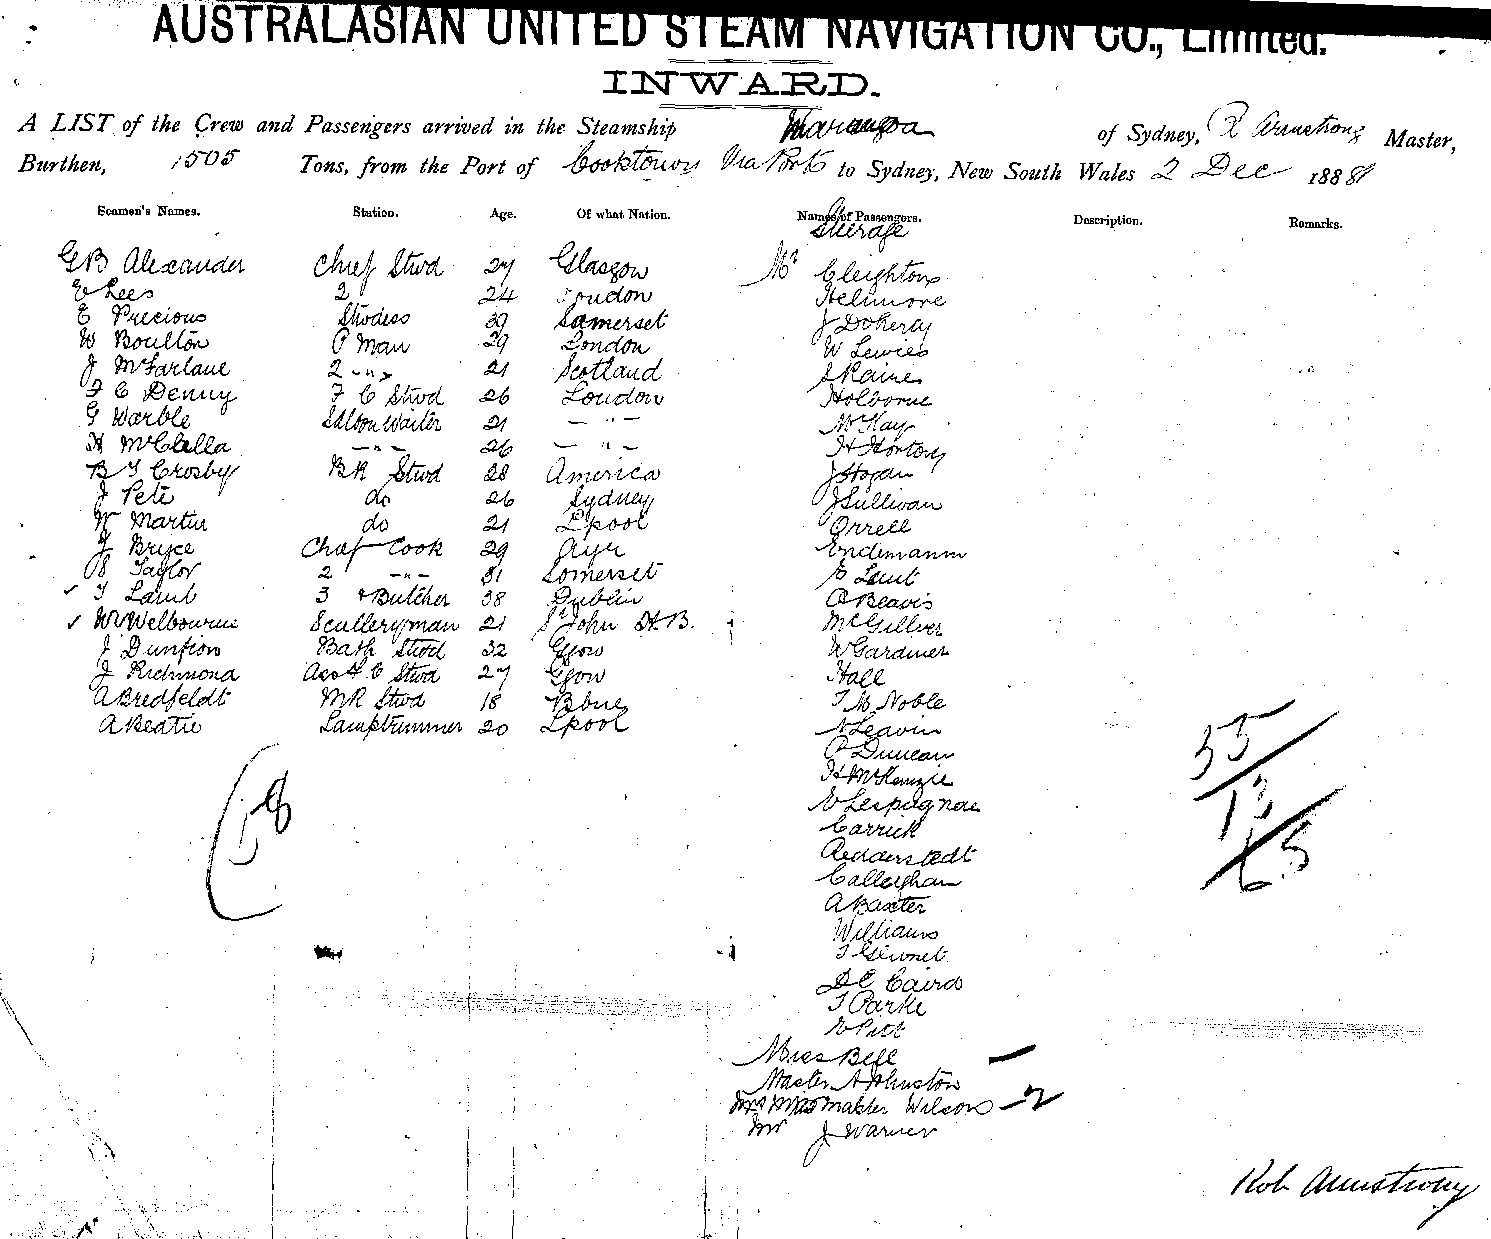 AUSTRALASIAN UNITED STEAM NAVIGATION CO., Limited.
INWARD.
A LIST of the Crew and Passengers arrived in the Steamship Maranoa of Sydney, R Armstrong Master,
Burthen, 1505 Tons, from the Port of Cooktown Via Ports to Sydney, New South Wales 2 Dec 1888
Seamen's Names. Station. Age. Of what Nation. Names of Passengers. Description. Remarks.
Steerage
GB Alexander Chief Stwd 27 Glasgow Mr Cleighton
E Lees 2 24 London Helimore
E Precious Stwdess 39 Somerset J Doherty
W Boulton P Man 29 London W Lewies
J McFarlane 2 -"- 21 Scotland Raines
F C Denny F C Stwd 26 London Holborne
G Warble Saloon Waiter 21 - " - McKay
H McClella - " - 26 - " - H Horton
B T Crosby BR Stwd 28 America J Hogan
J Pete do 26 Sydney J Sullivan
W Martin do 21 Lpool Orrell
J Bryce Chief Cook 29 Ayr Endemann
Taylor 2 -"- 31 Somerset E Lamt
✓ T Lamb 3 & Butcher 38 Dublin Beavis
✓ W Welbourne Sculleryman 21 St John N.B. McGillver
J Dunfion Bath Stwd 32 Ggow W Gardiner
J Richmond Asst F C Stwd 27 Ggow Hall
A Bredfeldt MR Stwd 18 Bbne T M Noble
A Beatie Lamptrimmer 20 Lpool N Leavin
P Duncan
H McKenzie
E Lespagnou
Carrick
Aedderstedt
Calleighan
A Baxter
Williams
D C Caird
T Parke
E Pitt
Miss Bell
Master A Johnston
Mrs Miss Master Wilson - 2
Mr J Warner
(58
55
13
65
Rob Armstrong